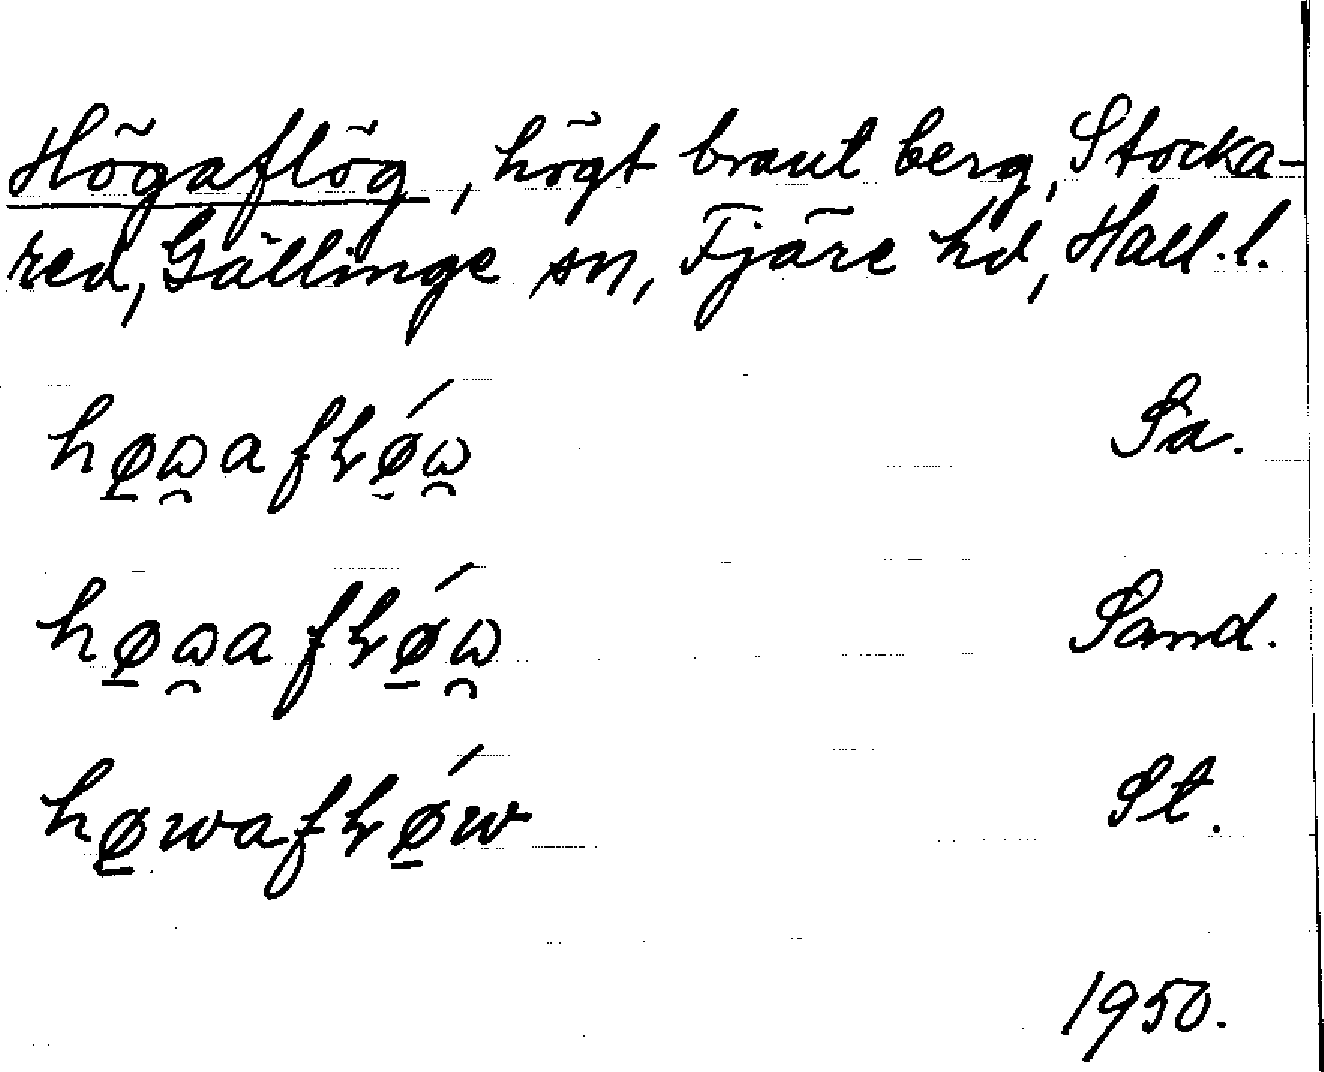 Högaflög, högt brant berg, Stocka-
red, Gällinge sn, Fjäre hd, Hall. l.
hø̱ω̯afꞎǿ̱ω̯ Sa.
hø̱ω̯afꞎǿ̱ω̯ Sand.
hø̱wafꞎǿ̱w St.
1950.